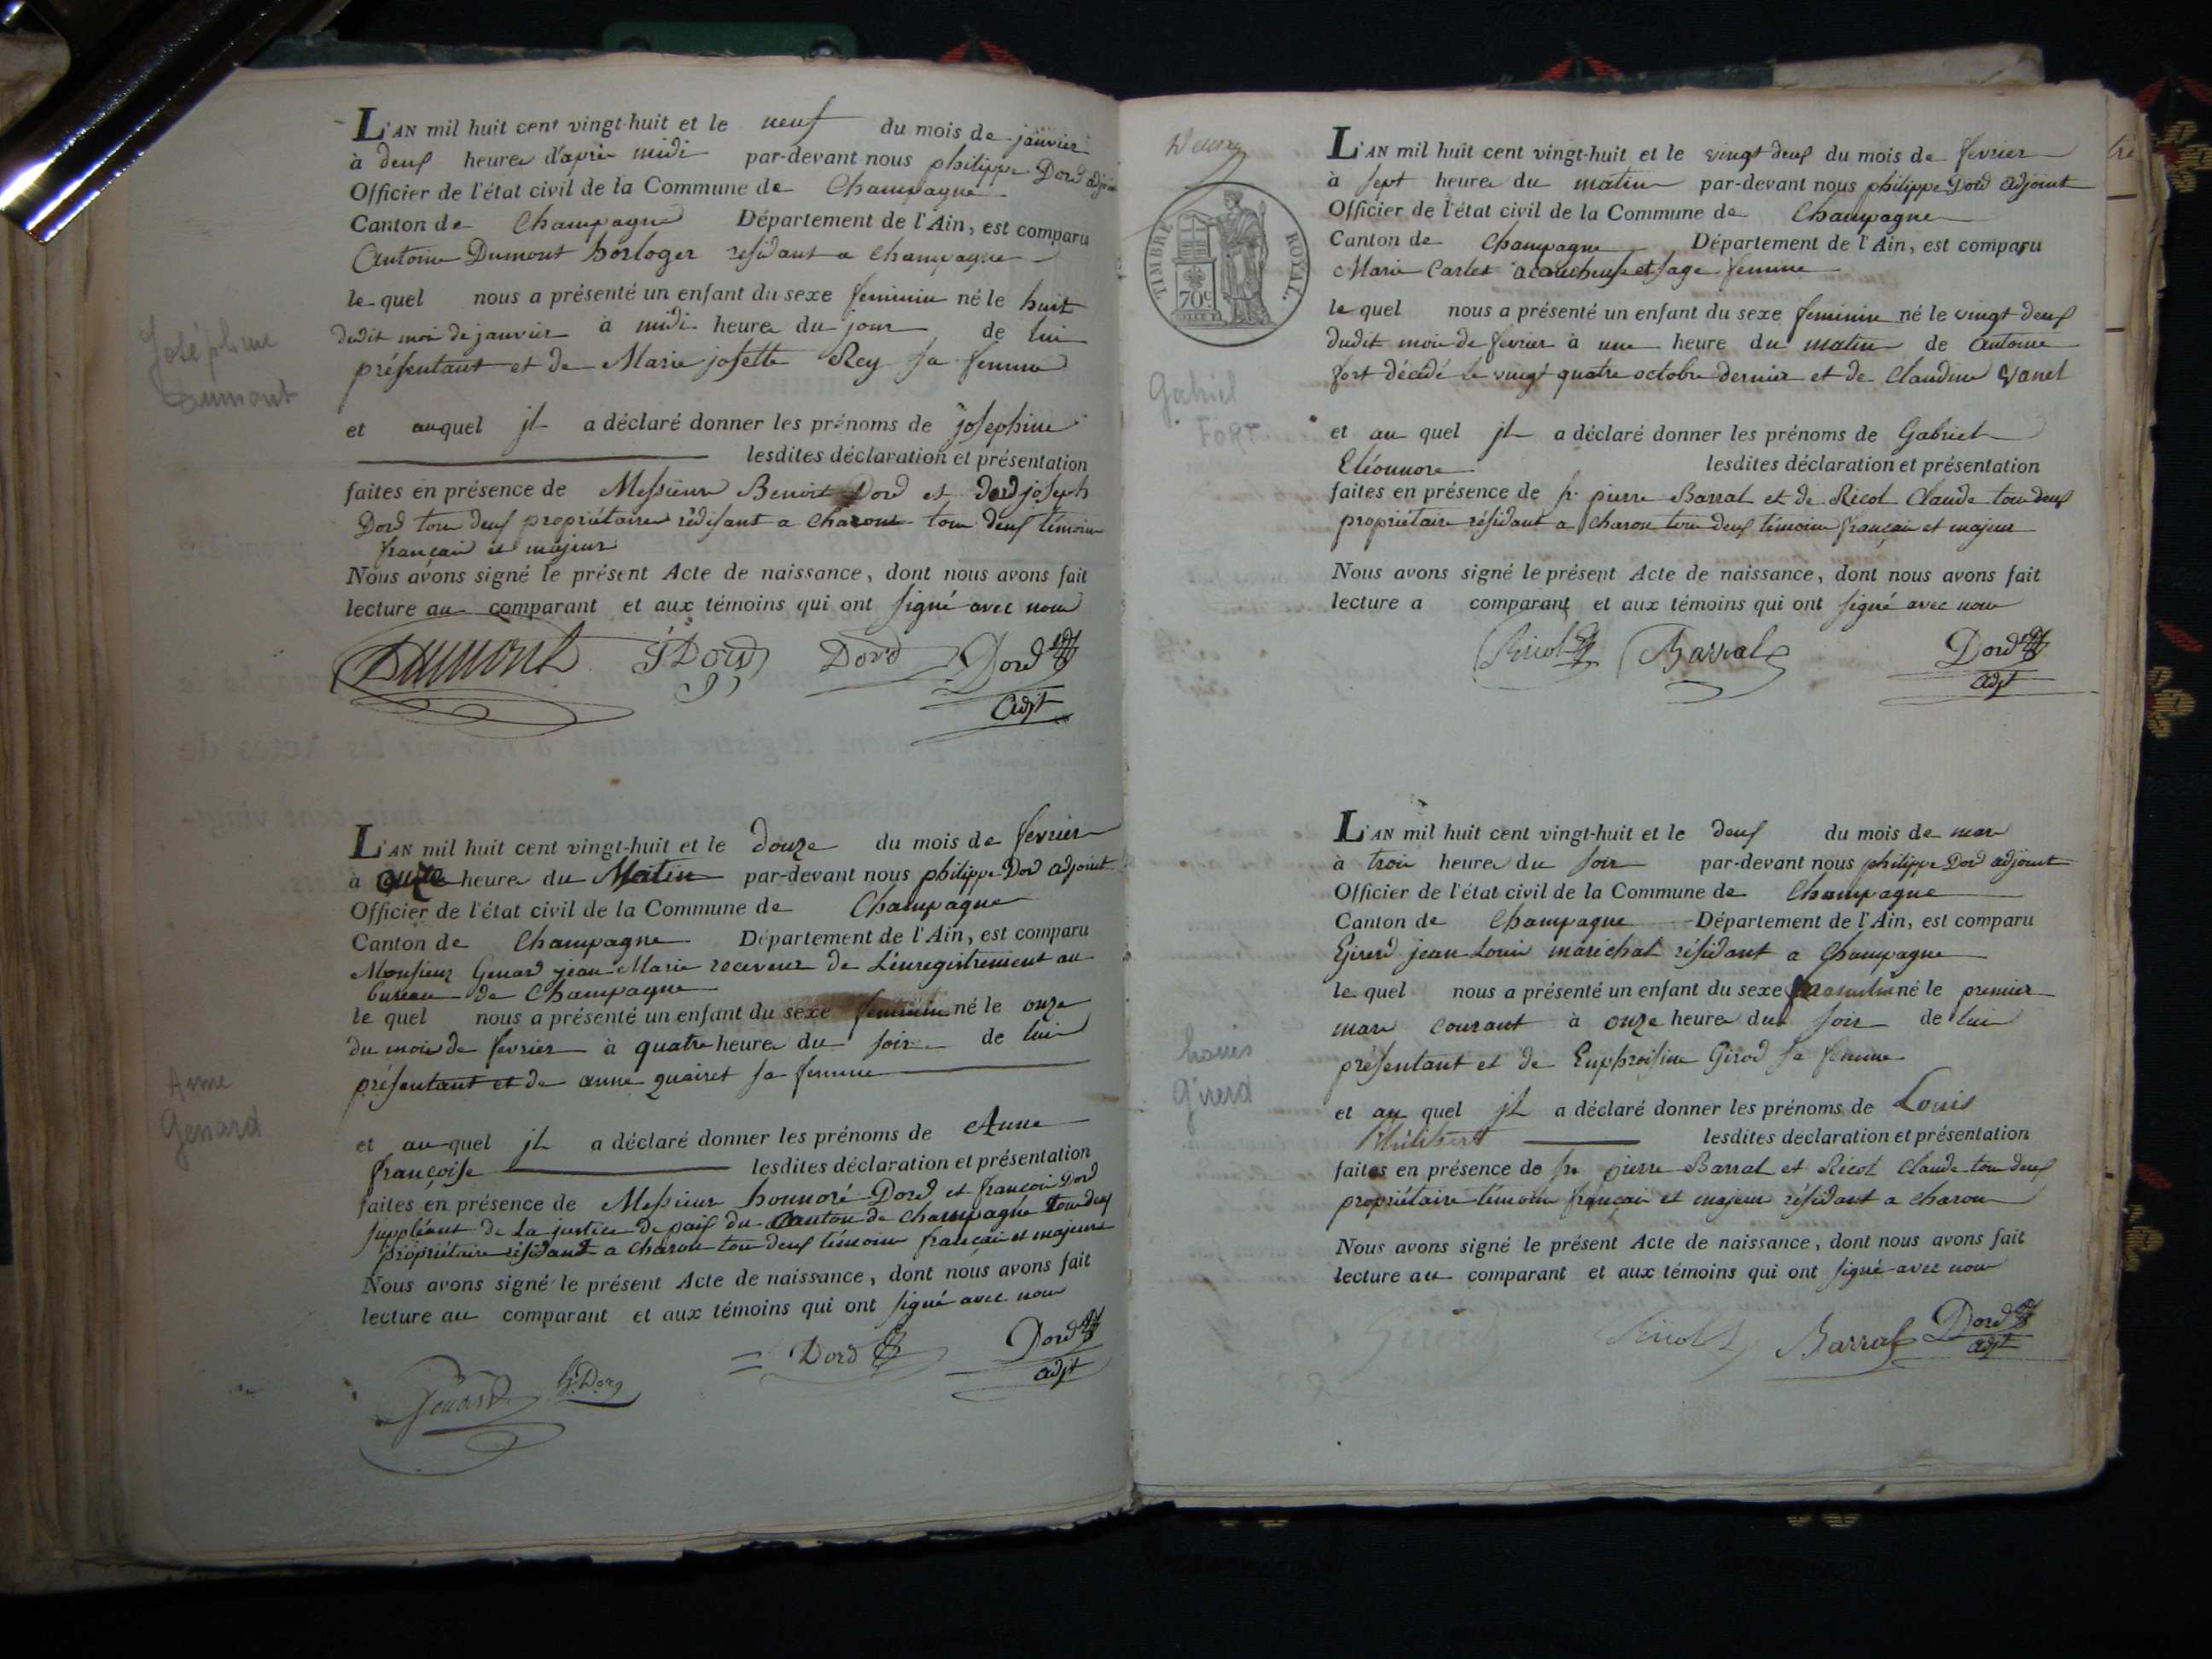 Joséphine
Dumont
L'AN mil huit cent vingt-huit et le neuf du mois de janvier
à deux heures d'après midi par-devant nous philippe Dord adjoint
Officier de l'état civil de la Commune de Champagne
Canton de Champagne Département de l'Ain, est comparu
Antoine Dumont horloger résidant a Champagne
le quel nous a présenté un enfant du sexe feminin né le huit
dudit mois de janvier à midi heures du jour de lui
présentant et de Marie josette Rey sa femme
et auquel jl a déclaré donner les prénoms de josephine
lesdites déclaration et présentation
faites en présence de Messieurs Benoit Dord et joseph
Dord tous deux propriétaires résidant a Charon tous deux témoins
français et majeurs
Nous avons signé le présent Acte de naissance, dont nous avons fait
lecture au comparant et aux témoins qui ont signé avec nous
Dumont Dord Dord Dord
adjt
Anne
Genard
L'AN mil huit cent vingt-huit et le douze du mois de fevrier
à onze heures du Matin par-devant nous philippe Dord adjoint
Officier de l'état civil de la Commune de Champagne
Canton de Champagne Département de l'Ain, est comparu
Monsieur Genard jean Marie receveur de L'enregistrement au
bureau de Champagne
le quel nous a présenté un enfant du sexe feminin né le onze
du mois de fevrier à quatre heures du soir de lui
présentant et de anne quairet sa femme
et au quel jl a déclaré donner les prénoms de Anne
françoise lesdites déclaration et présentation
faites en présence de Messieurs honnoré Dord et françois Dord
suppléant de la justice de paix du Canton de Champagne tous deux
propriétaires résidant a Charon tous deux témoins français et majeurs
Nous avons signé le présent Acte de naissance, dont nous avons fait
lecture au comparant et aux témoins qui ont signé avec nous
Genard Dord Dord Dord
adjt
TIMBRE ROYAL.
70c
Gabriel
FORT
L'AN mil huit cent vingt-huit et le vingt deux du mois de fevrier
à sept heures du matin par-devant nous philippe Dord adjoint
Officier de l'état civil de la Commune de Champagne
Canton de Champagne Département de l'Ain, est comparu
Marie Carlet acoucheuse et sage femme
le quel nous a présenté un enfant du sexe feminin né le vingt deux
dudit mois de fevrier à une heure du matin de antoine
fort décédé le vingt quatre octobre dernier et de Claudine Vanel
et au quel jl a déclaré donner les prénoms de Gabriel
Eléonnore lesdites déclaration et présentation
faites en présence de sr. pierre Barral et de Ricol Claude tous deux
propriétaire résidant a Charon tous deux témoins français et majeur
Nous avons signé le présent Acte de naissance, dont nous avons fait
lecture a comparant et aux témoins qui ont signé avec nous
Ricol Barral Dord
adjt
Louis
Girerd
L'AN mil huit cent vingt-huit et le deux du mois de mars
à trois heures du soir par-devant nous philippe Dord adjoint
Officier de l'état civil de la Commune de Champagne
Canton de Champagne Département de l'Ain, est comparu
Girerd jean Louis maréchal résidant a Champagne
le quel nous a présenté un enfant du sexe masculin né le premier
mars courant à onze heures du soir de lui
présentant et de Euphroisine Girod sa femme
et au quel jl a déclaré donner les prénoms de Louis
Philibert lesdites declaration et présentation
faites en présence de sr. pierre Barral et Ricol Claude tous deux
propriétaire témoins français et majeurs résidant a Charon
Nous avons signé le présent Acte de naissance, dont nous avons fait
lecture au comparant et aux témoins qui ont signé avec nous
Girerd Ricol Barral Dord
adjt